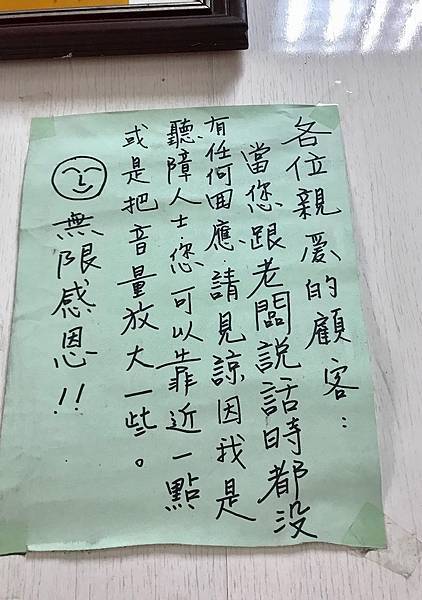 各位親愛的顧客：
當您跟老闆說話時都没
有任何回應請見諒因我是
聽障人士您可以靠近一點
或是把音量放大一些。
無限感恩!!